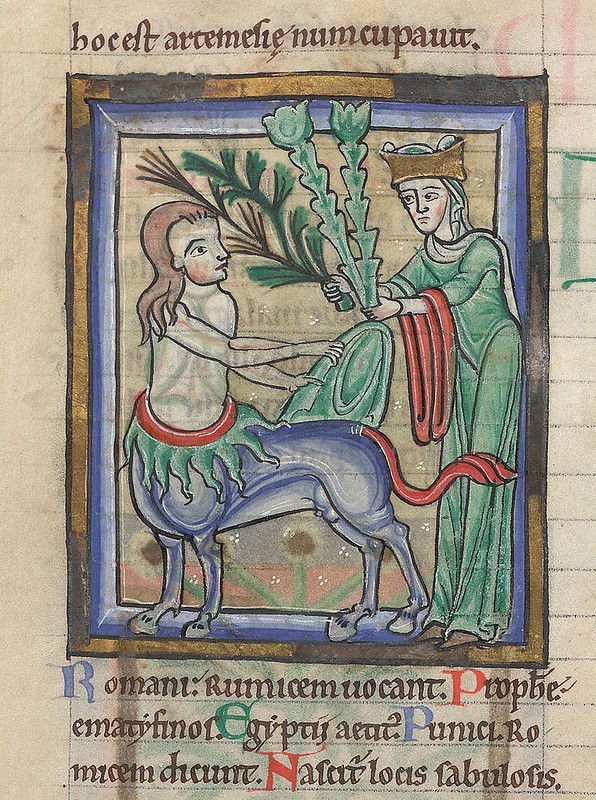 hoc est artemesię numcupauit.
Romani: Rumicem uocant. Prophe-
ematyfinos. Egyptij aetit. Punici. Ro
micem dicunt. Nascit locis sabulosis.